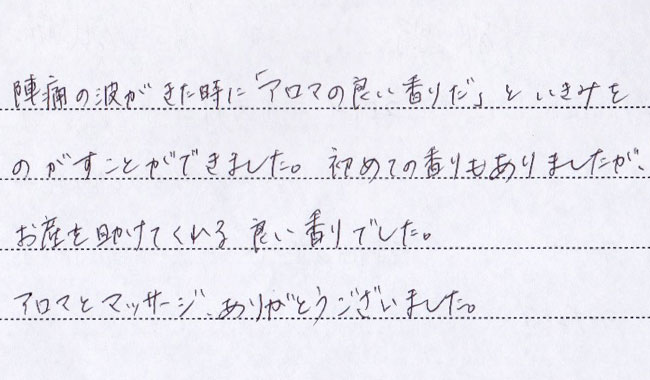 陣痛の波がきた時に「アロマの良い香りだ」といきみを
のがすことができました。初めての香りもありましたが、
お産を助けてくれる良い香りでした。
アロマとマッサージ、ありがとうございました。